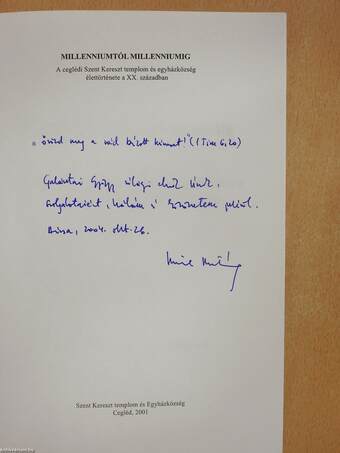 MILLENNIUMTÓL MILLENNIUMIG
A ceglédi Szent Kereszt templom és egyházközség
élettörténete a XX. században
„őrizd meg a rád bízott kincset!" (1Tim 6,20)
György világi elnök úrnak,
szolgálataiért, hálám és szeretetem jeléül.
2004. okt. 26.
Szent Kereszt templom és Egyházközség
Cegléd, 2001